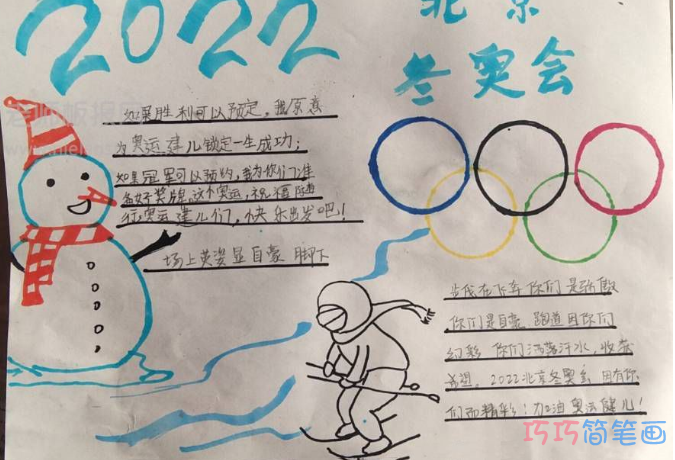 2022
北京
冬奥会
如果胜利可以预定，我愿意
为奥运建儿锁定一生成功；
如果冠军可以预约，我为你们准
备好奖牌，这个奥运，祝福
奥运建儿们，快乐出发吧！
场上英姿显自豪 脚下
你们是骄傲
你们是自豪 跑道因你们
幻彩 你们洒落汗水，收获
希望，2022北京冬奥会 因有你
们而精彩：加油奥运健儿！
巧巧简笔画